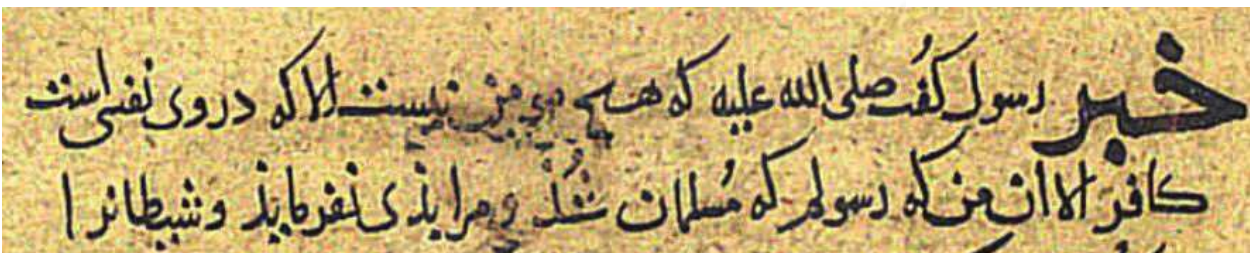 خبر رسول کفت صلی الله علیه که هیچ مومن نیست الا که در وی نفسی است
کافر الا ان من که رسولم که مسلمان شذ و مرا بذی نفرمایذ و شیطانرا